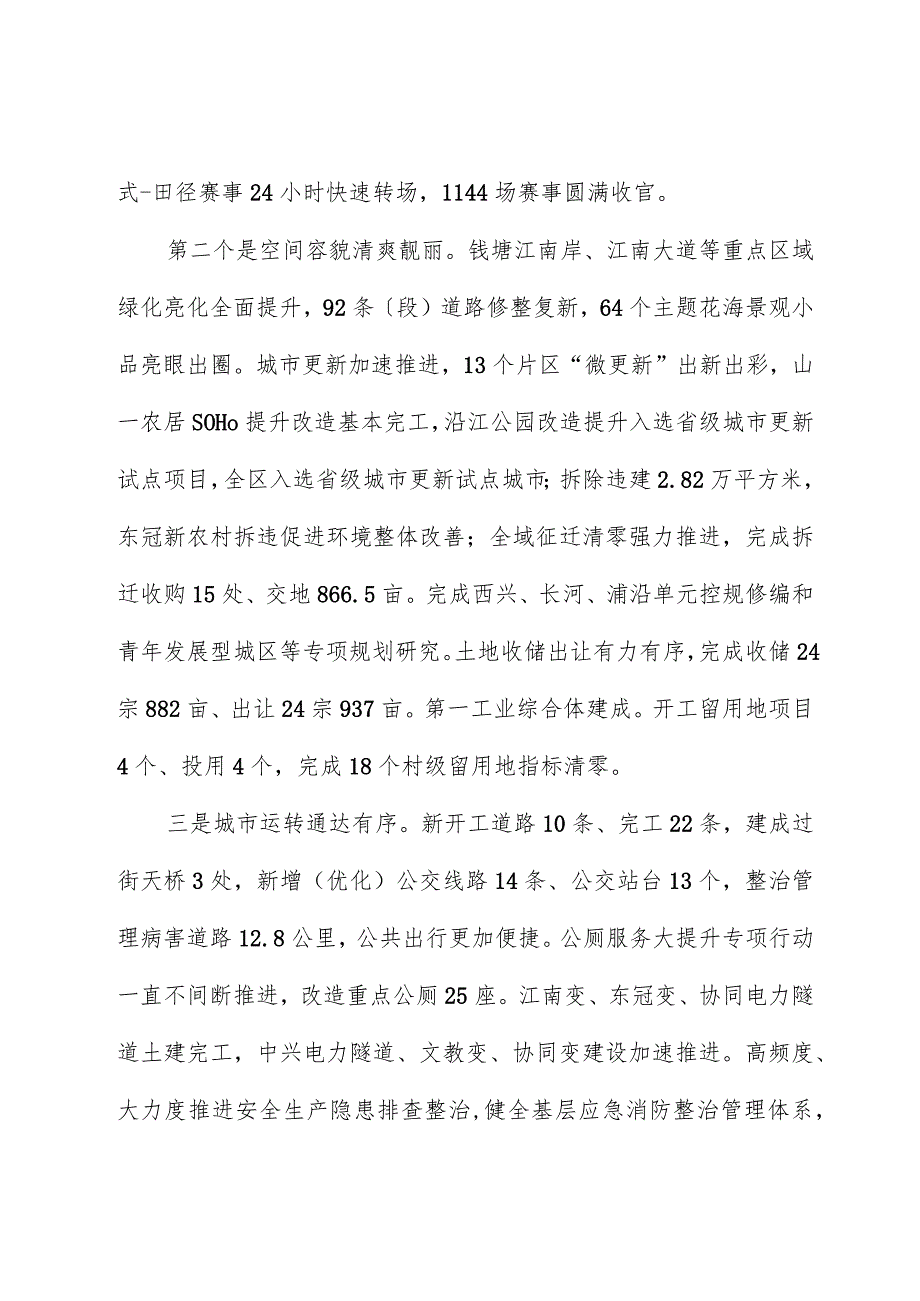 式-田径赛事24小时快速转场，1144场赛事圆满收官。
第二个是空间容貌清爽靓丽。钱塘江南岸、江南大道等重点区域
绿化亮化全面提升，92条〔段）道路修整复新，64个主题花海景观小
品亮眼出圈。城市更新加速推进，13个片区“微更新”出新出彩，山
一农居SOHo提升改造基本完工，沿江公园改造提升入选省级城市更新
试点项目，全区入选省级城市更新试点城市；拆除违建2.82万平方米，
东冠新农村拆违促进环境整体改善；全域征迁清零强力推进，完成拆
迁收购15处、交地866.5亩。完成西兴、长河、浦沿单元控规修编和
青年发展型城区等专项规划研究。土地收储出让有力有序，完成收储24
宗882亩、出让24宗937亩。第一工业综合体建成。开工留用地项目
4个、投用4个，完成18个村级留用地指标清零。
三是城市运转通达有序。新开工道路10条、完工22条，建成过
街天桥3处，新增（优化）公交线路14条、公交站台13个，整治管
理病害道路12.8公里，公共出行更加便捷。公厕服务大提升专项行动
一直不间断推进，改造重点公厕25座。江南变、东冠变、协同电力隧
道土建完工，中兴电力隧道、文教变、协同变建设加速推进。高频度、
大力度推进安全生产隐患排查整治,健全基层应急消防整治管理体系，